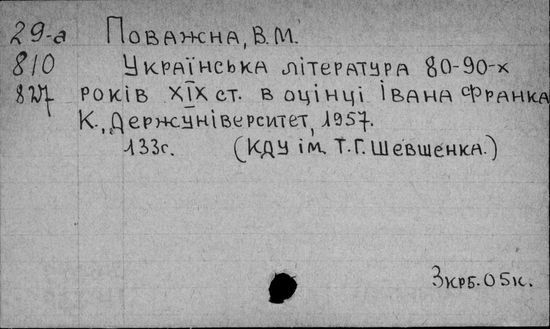 29-а Поважна, В.М.
810 Українська література 80-90-х
827 років XIX ст. в оцінці Івана Франка
К., Держуніверситет, 1957.
133с. (КДУ ім. Т.Г. Шевшенка.)
3крб. 05к.